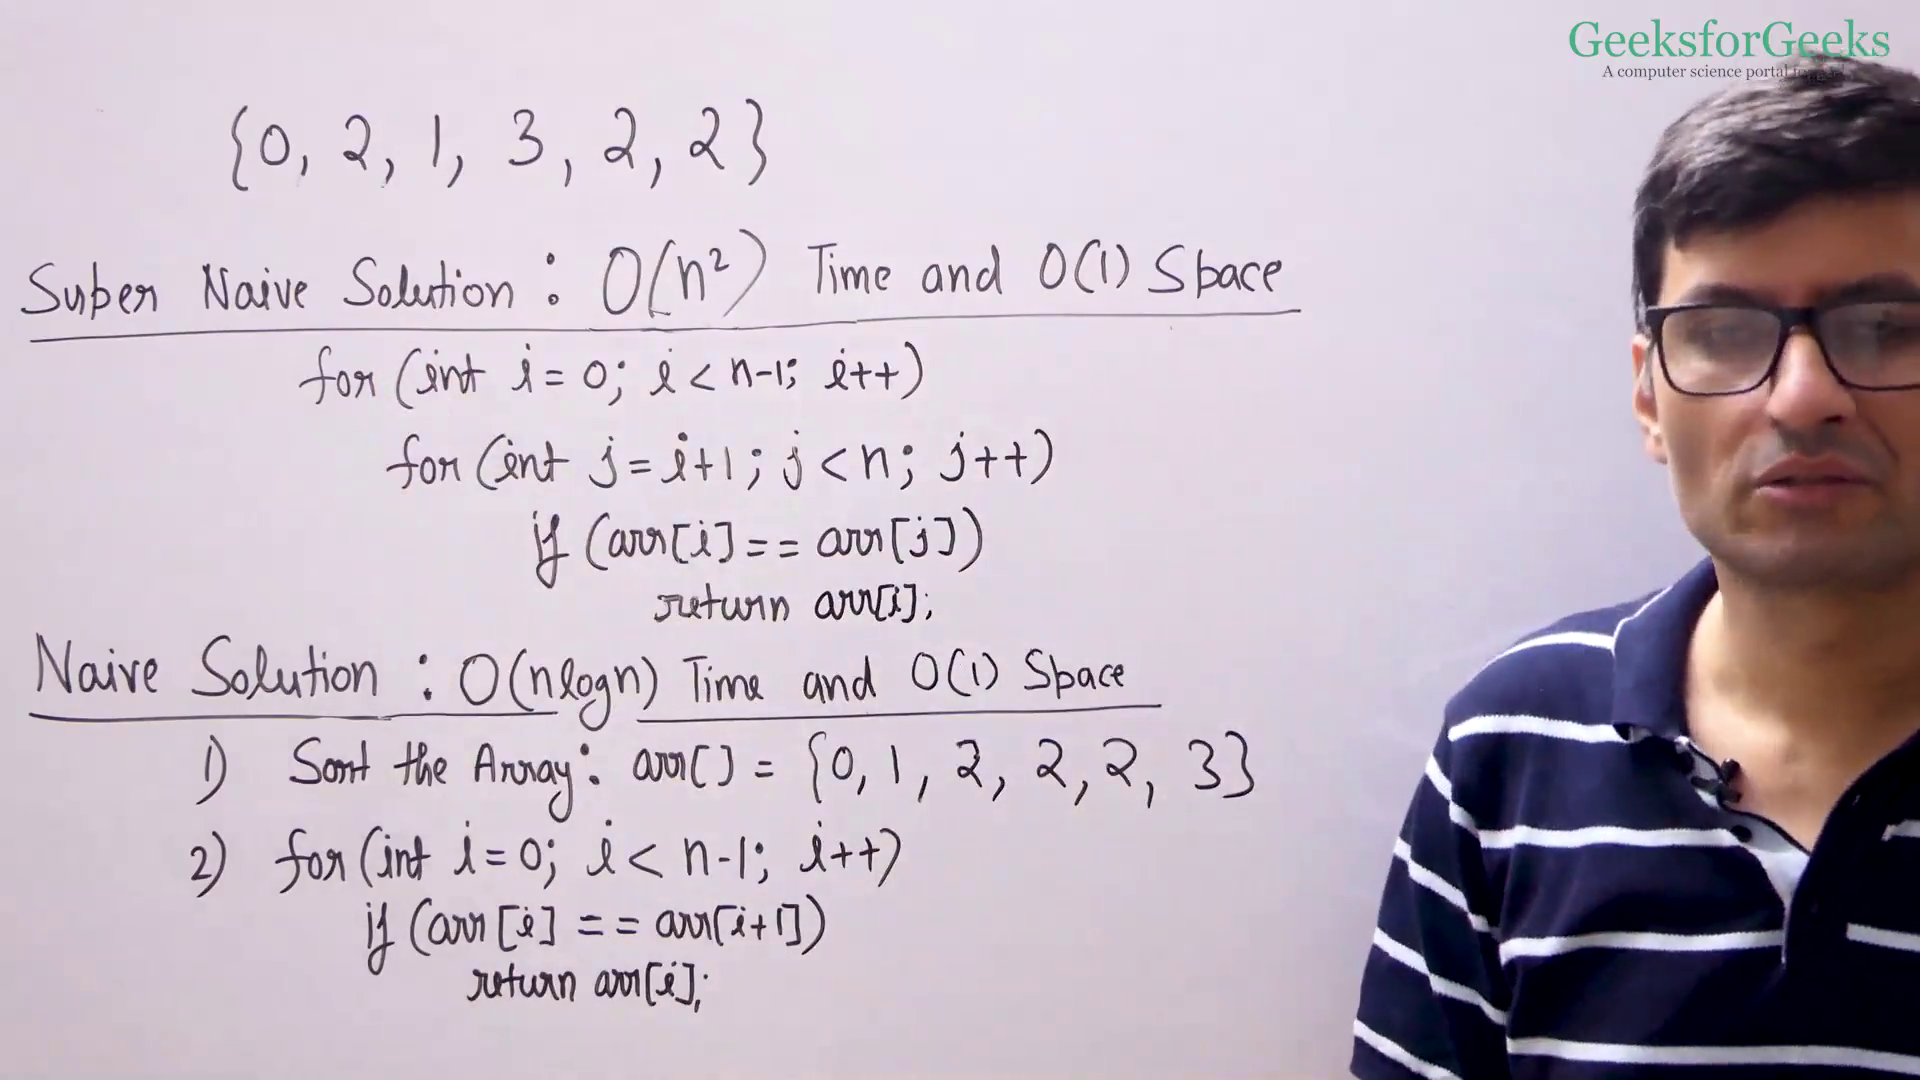 GeeksforGeeks
A computer science portal
{0, 2, 1, 3, 2, 2}
Super Naive Solution : O(n²) Time and O(1) Space
for (int i = 0; i < n-1; i++)
for (int j = i+1; j < n; j++)
if (arr[i] == arr[j])
return arr[i];
Naive Solution : O(nlogn) Time and O(1) Space
1) Sort the Array: arr[] = {0, 1, 2, 2, 2, 3}
2) for (int i = 0; i < n-1; i++)
if (arr[i] == arr[i+1])
return arr[i];